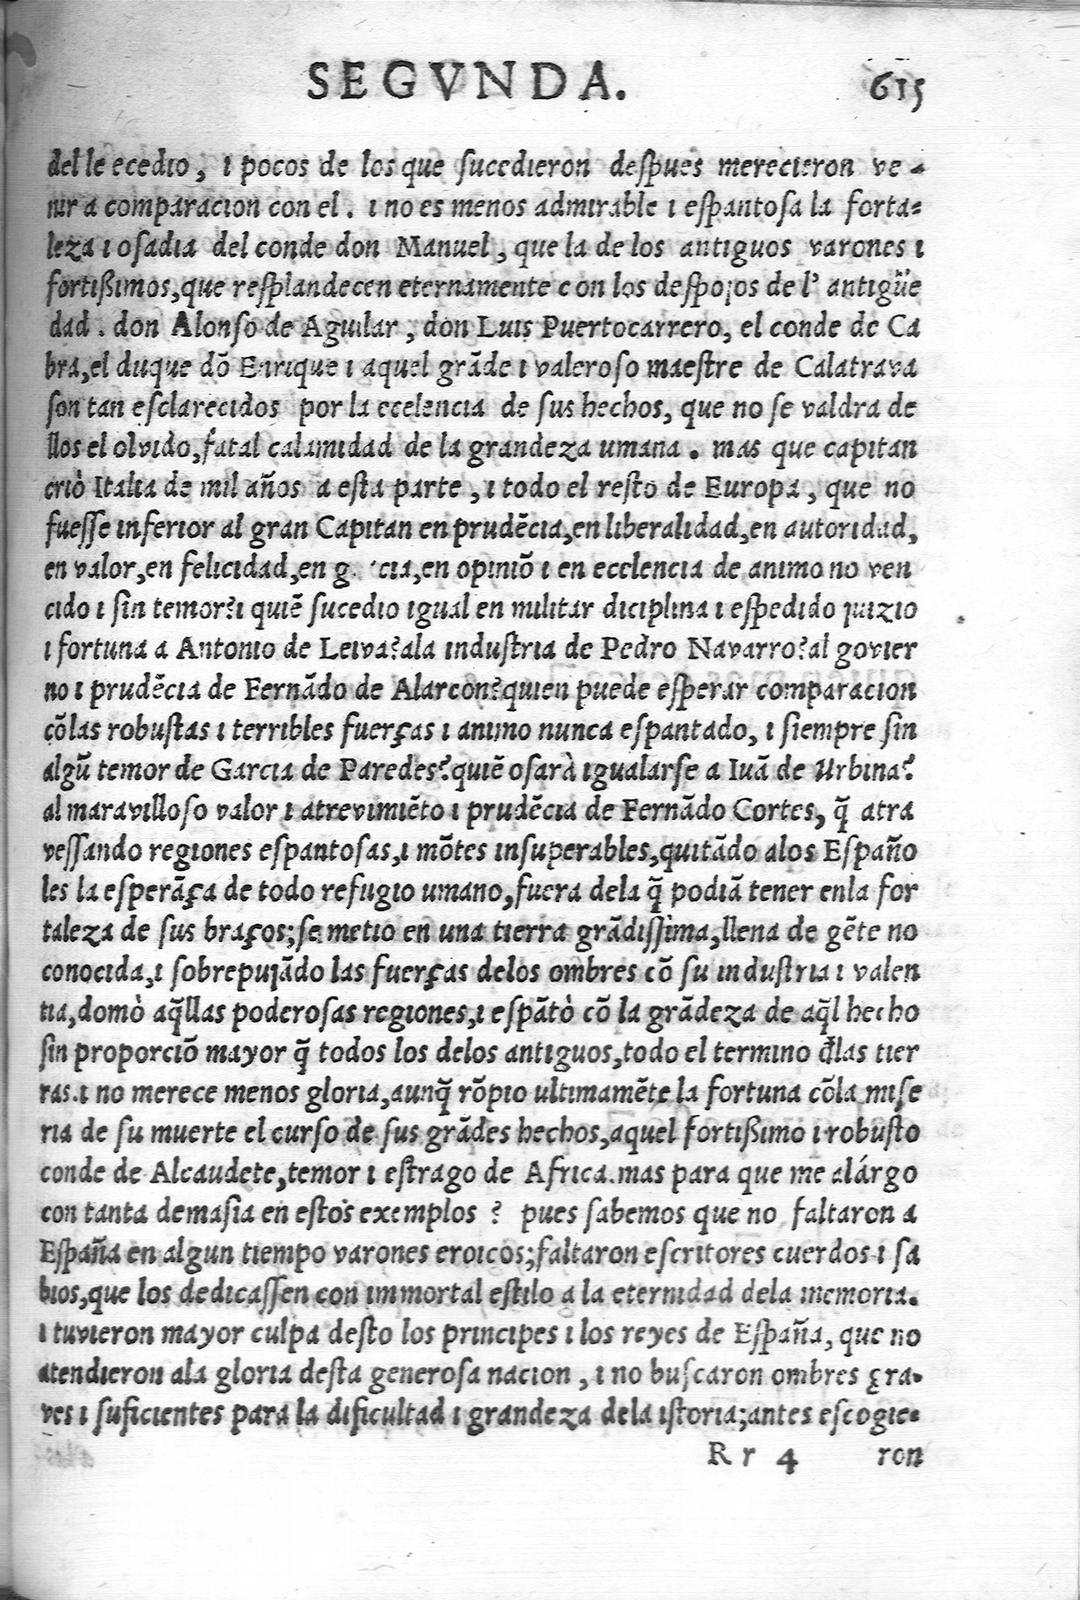 SEGVNDA. 615
del le ecedio, i pocos de los que ſucedieron deſpues merecieron ve-
nir a comparacion con el. i no es menos admirable i eſpantoſa la forta-
leza i oſadia del conde don Manuel, que la de los antiguos varones i
fortißimos, que reſplandecen eternamente con los deſpojos de l' antigüe
dad. don Alonſo de Aguilar, don Luis Puertocarrero, el conde de Ca
bra, el duque dõ Enrique i aquel grãde i valeroso maeſtre de Calatrava
ſon tan eſclarecidos por la ecelencia de ſus hechos, que no ſe valdra de
llos el olvido, fatal calamidad de la grandeza umana. mas que capitan
criò Italia de mil años a eſta parte, i todo el reſto de Europa, que no
fueſſe inferior al gran Capitan en prudẽcia, en liberalidad, en autoridad,
en valor, en felicidad, en opiniõ i en ecelencia de animo no ven
cido i ſin temor? i quiẽ ſucedio igual en militar diciplina i eſpedido juizio
i fortuna a Antonio de Leiva? ala induſtria de Pedro Navarro? al govier
no i prudẽcia de Fernãdo de Alarcon? quien puede eſperar comparacion
cõlas robuſtas i terribles fuerças i animo nunca eſpantado, i ſiempre ſin
algũ temor de Garcia de Paredes? quiẽ oſarà igualarſe a Iuã de Urbina?
al maravilloso valor i atrevimiẽto i prudẽcia de Fernãdo Cortes, q̃ atra
veſſando regiones eſpantoſas, i mõtes inſuperables, quitãdo alos Eſpaño
les la eſperãça de todo refugio umano, fuera dela q̃ podiã tener enla for
taleza de ſus braços; ſe metio en una tierra grãdiſſima, llena de gẽte no
conocida, i ſobrepujãdo las fuerças delos ombres cõ ſu induſtria i valen
tia, domò aq̃llas poderoſas regiones, i eſpãtò cõ la grãdeza de aq̃l hecho
ſin proporciõ mayor q̃ todos los delos antiguos, todo el termino d̃las tier
ras. i no merece menos gloria, aunq̃ rõpio ultimamẽte la fortuna cõla miſe
ria de ſu muerte el curſo de ſus grãdes hechos, aquel fortißimo i robuſto
conde de Alcaudete, temor i eſtrago de Africa. mas para que me alárgo
con tanta demaſia en eſtos exemplos? pues ſabemos que no faltaron a
Eſpaña en algun tiempo varones eroicos; faltaron eſcritores cuerdos i ſa
bios, que los dedicaſſen con immortal eſtilo a la eternidad dela memoria.
i tuvieron mayor culpa deſto los principes i los reyes de Eſpaña, que no
atendieron ala gloria deſta generoſa nacion, i no buſcaron ombres gra-
ves i ſuficientes para la dificultad i grandeza dela iſtoria; antes eſcogie-
Rr 4 ron